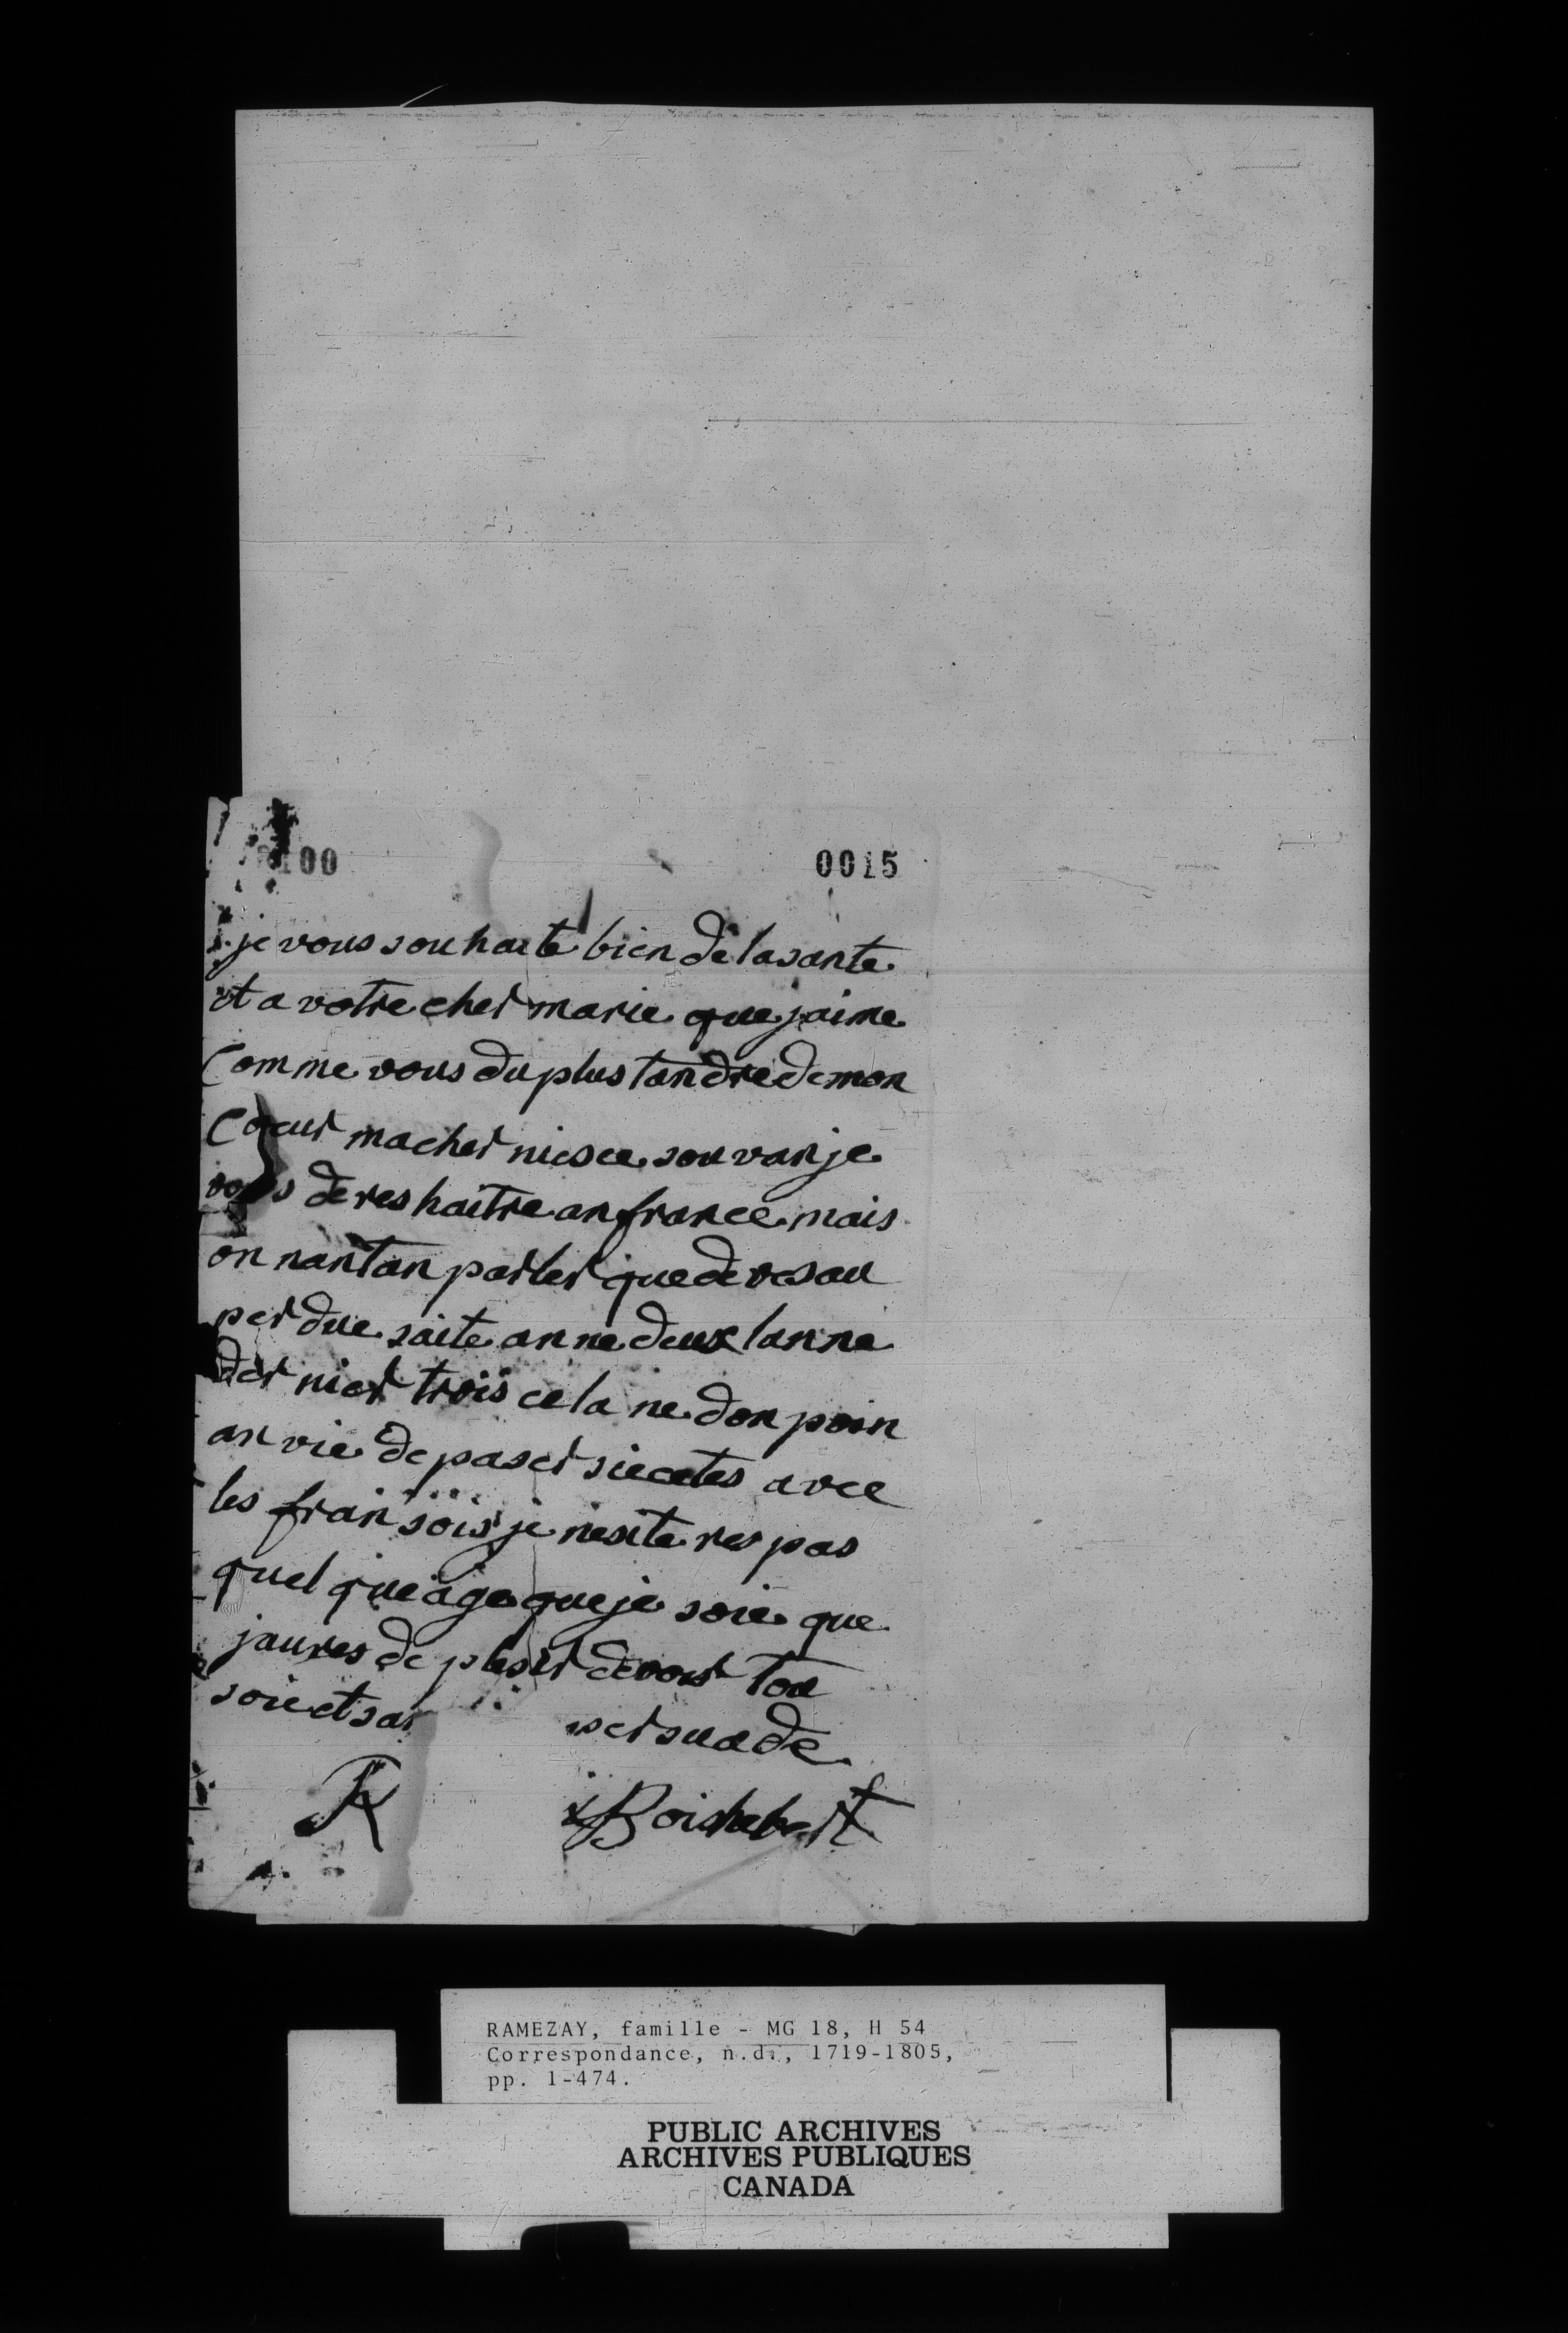 100 0015
je vous souhaite bien de la sante
et a votre cher marie que jaime
Comme vous du plus tandre de mon
Coeur ma cher niesce souvan je
vous deres haitre an france mais
on nantan parler que de vesau
perdue saite anne deux lanne
der nier trois cela ne don poin
anvie de paser siecetes avec
les fransois je nesite res pas
quel que age que je soie que
jaures de plesir de voir tou
soie et sa persuade
R Boishebert
RAMEZAY, famille - MG 18, H 54
Correspondance, n.d., 1719-1805,
pp. 1-474.
PUBLIC ARCHIVES
ARCHIVES PUBLIQUES
CANADA